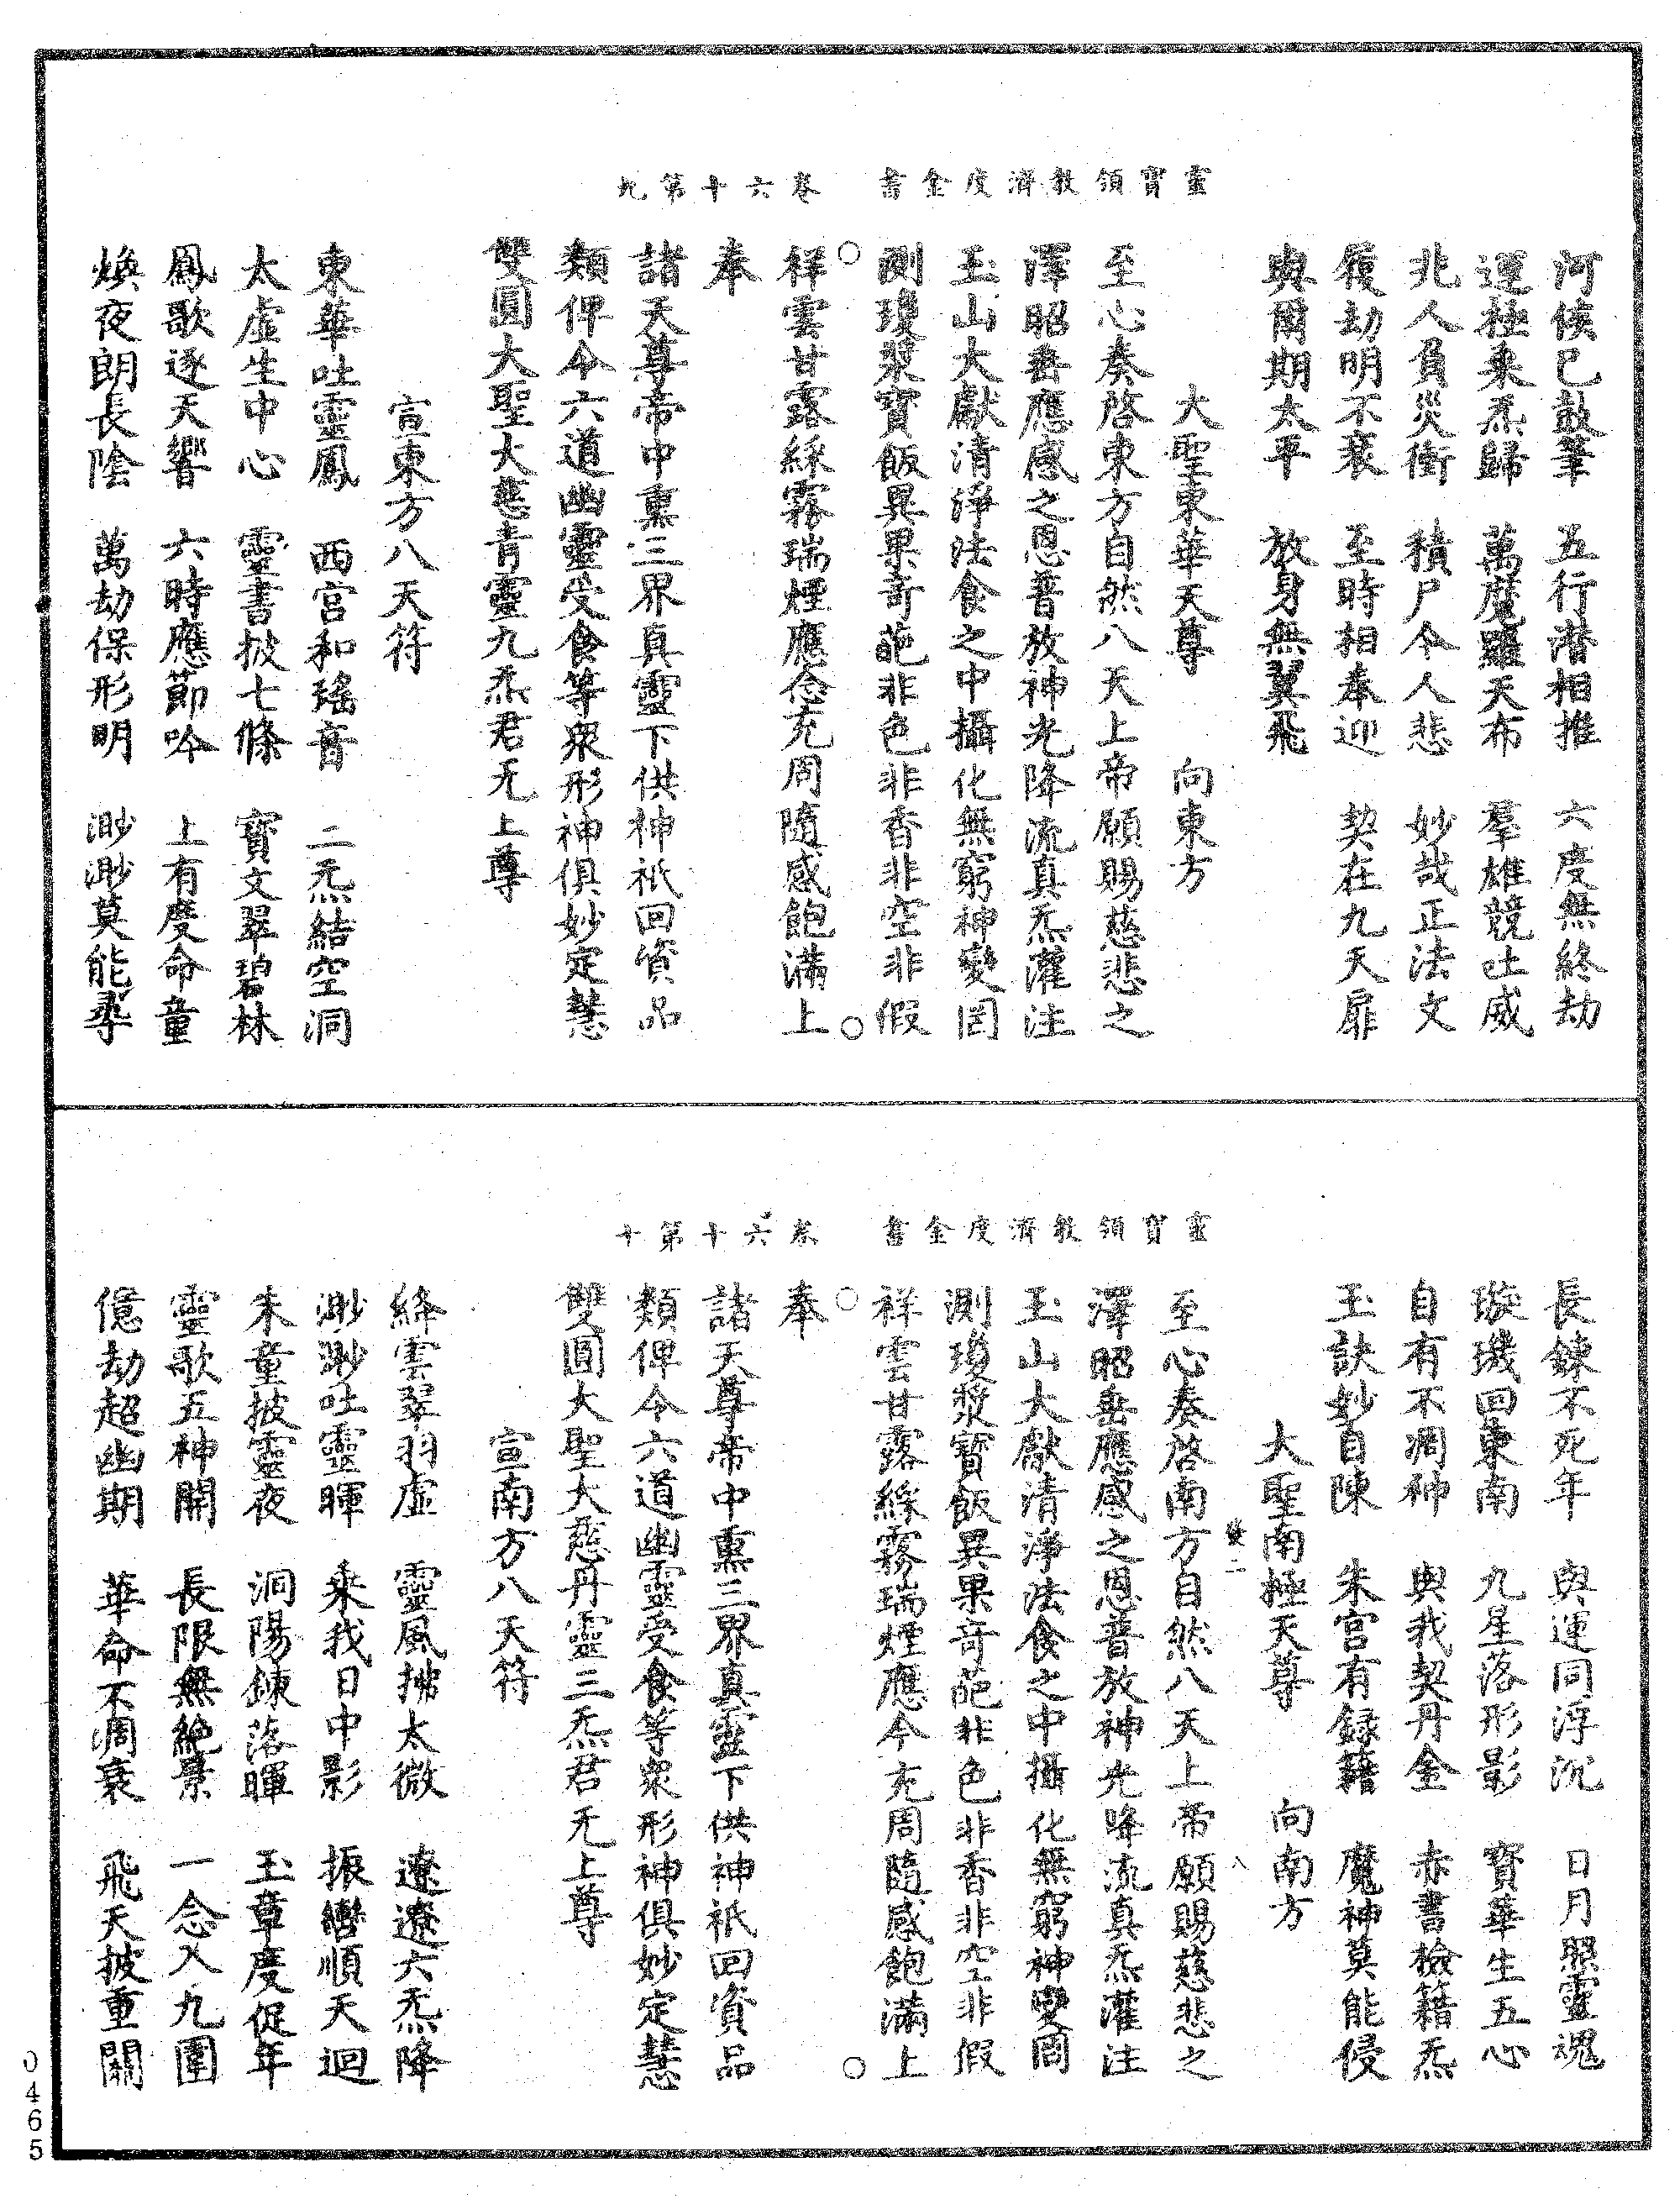 靈寶領教濟度金書　卷六十第九
河侯已鼓筆　五行潛相推　六度無終劫
運極乘炁歸　萬魔羅天布　羣雄競吐威
北人負災衝　積尸令人悲　妙哉正法文
履劫明不衰　至時相奉迎　契在九天扉
與爾期太平　放身無翼飛
大聖東華天尊　向東方
至心奏啓東方自然八天上帝願賜慈悲之
澤昭垂應感之恩普放神光降流真炁灌注
玉山大獻清淨法食之中攝化無窮神變罔
測瓊漿寶飯異果奇葩非色非香非空非假
祥雲甘露綵霧瑞煙應念充周隨感飽滿上
奉
諸天尊帝中熏三界真靈下供神祇回資品
類俾令六道幽靈受食等衆形神俱妙定慧
雙圓大聖大慈青靈九炁君无上尊
宣東方八天符
東華吐靈鳳　西宮和瑤音　二炁結空洞
太虛生中心　靈書披七條　寶文翠碧林
鳳歌逐天響　六時應節吟　上有度命童
煥夜朗長陰　萬劫保形明　渺渺莫能尋
靈寶領教濟度金書　卷六十第十
長鍊不死年　與運同浮沉　日月照靈魂
璇璣回東南　九星落形影　寶華生五心
自有不凋神　與我契丹金　赤書檢籍炁
玉訣妙自陳　朱宮有録籍　魔神莫能侵
大聖南極天尊　向南方
二　八
至心奏啓南方自然八天上帝願賜慈悲之
澤昭垂應感之恩普放神光降流真炁灌注
玉山大獻清淨法食之中攝化無窮神變罔
測瓊漿寶飯異果奇葩非色非香非空非假
祥雲甘露綵霧瑞煙應今充周隨感飽滿上
奉
諸天尊帝中熏三界真靈下供神祇回資品
類俾令六道幽靈受食等衆形神俱妙定慧
雙圓大聖大慈丹靈三炁君无上尊
宣南方八天符
絳雲翠羽虛　靈風拂太微　遼遼六炁降
渺渺吐靈暉　乘我日中影　振轡順天迴
朱童披靈夜　洞陽鍊落暉　玉章度促年
靈歌五神開　長限無絶景　一念入九圍
億劫超幽期　華命不凋衰　飛天披重關
0465